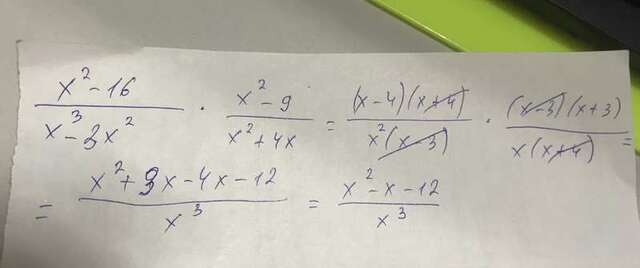 (x² - 16)/(x³ - 3x²) · (x² - 9)/(x² + 4x) = ((x - 4)(x + 4))/(x²(x - 3)) · ((x - 3)(x + 3))/(x(x + 4)) =
= (x² + 3x - 4x - 12)/x³ = (x² - x - 12)/x³